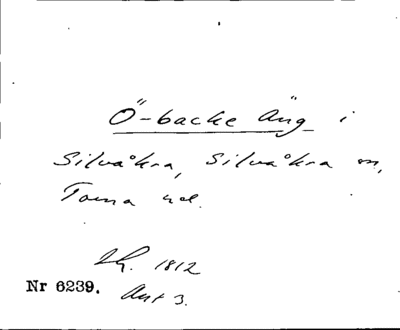 Ö-backe Äng i
Silvåkra, Silvåkra sn,
Torna hd.
1812
Nr 6239. Akt 3.